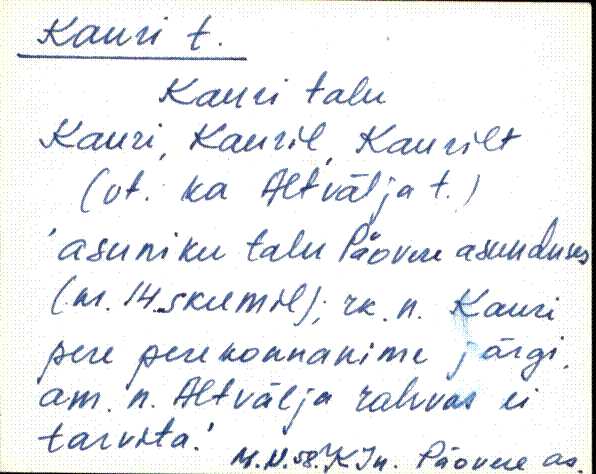 Kauri t.
Kauri talu
Kauri, Kauril, Kaurilt
(vt. ka Altvälja t.)
'asuniku talu Päovere asunduses
(nr. 14 skeemil); rk. n. Kauri
pere perekonnanime järgi,
am. n. Altvälja rahvas ei
tarvita.'
M.N. 58. KJn. Päovere as.